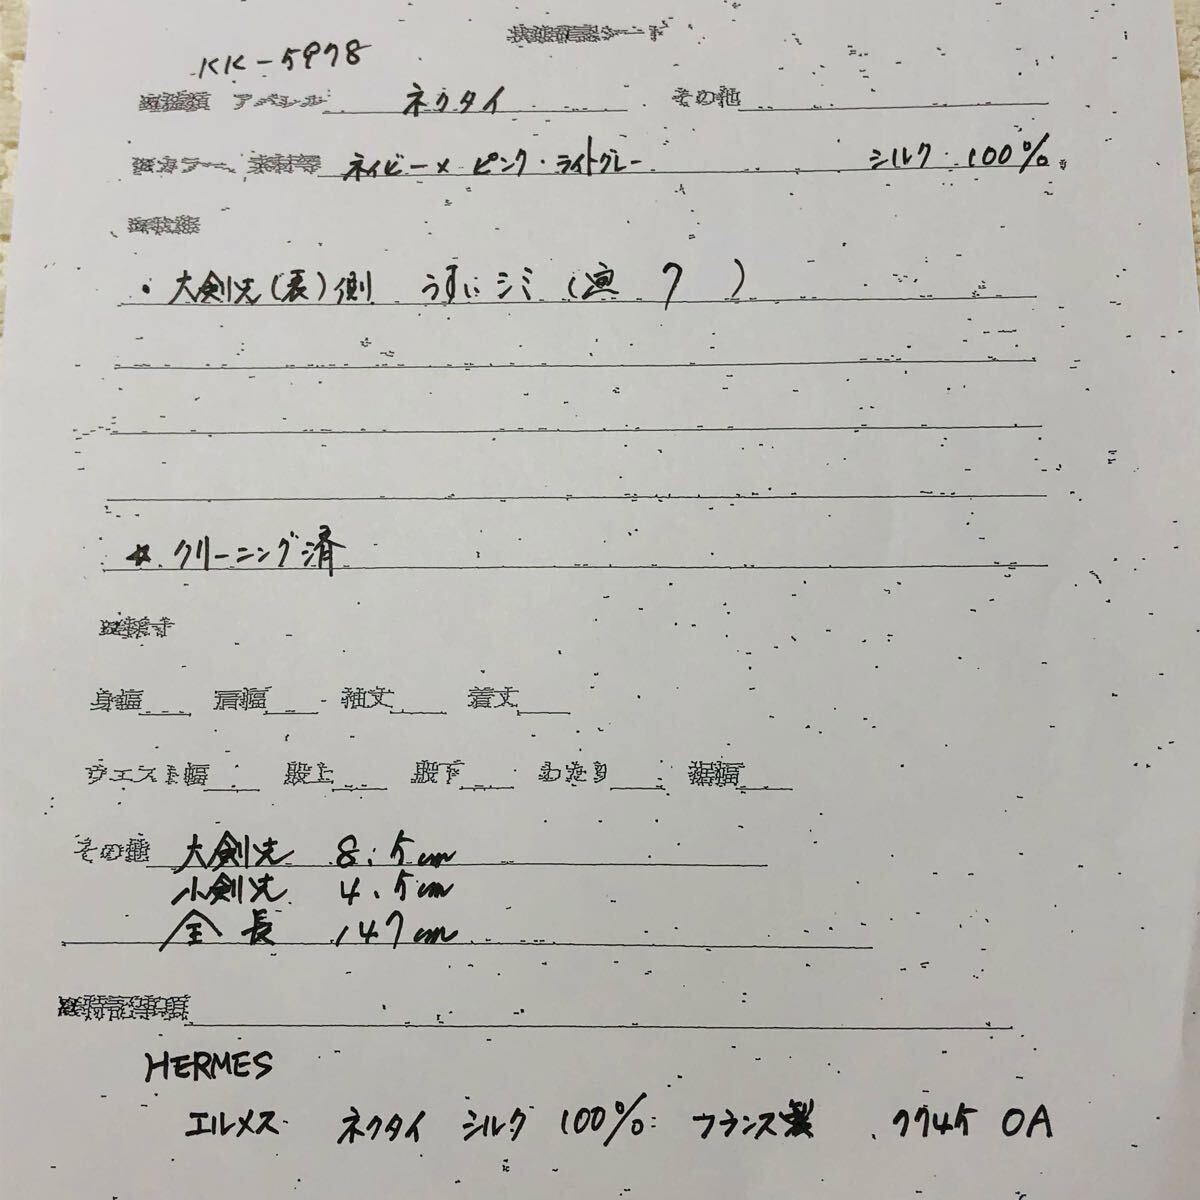 KK-5978
アパレル ネクタイ その他
カラー 素材等 ネイビー×ピンク・ライトグレー シルク 100%
・大剣先(表)側 うすいシミ( 7 )
☆.クリーニング済
身幅 肩幅 袖丈 着丈
ウエスト幅 股上 股下 わたり 裾幅
その他 大剣先 8.5cm
小剣先 4.5cm
全長 147cm
特記事項
HERMES
エルメス ネクタイ シルク 100% フランス製 7745 OA